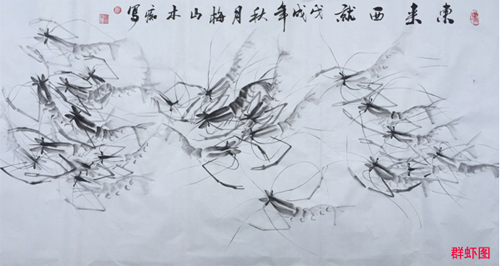 東来西就戊戌年秋月梅山木寫
群虾图